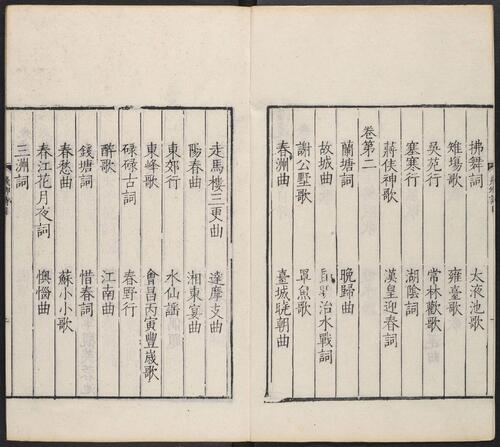 拂舞詞　太液池歌
雉塲歌　雍臺歌
吳苑行　常林歡歌
塞寒行　湖陰詞
蔣侯神歌　漢皇迎春詞
卷第二
蘭塘詞　晚歸曲
故城曲　治水戰詞
謝公墅歌　罩魚歌
春洲曲　臺城曉朝曲
走馬樓三更曲　達摩支曲
陽春曲　湘東宴曲
東郊行　水仙謠
東峰歌　會昌丙寅豐歲歌
碌碌古詞　春野行
醉歌　江南曲
錢塘詞　惜春詞
春愁曲　蘇小小歌
春江花月夜詞　懊惱曲
三洲詞